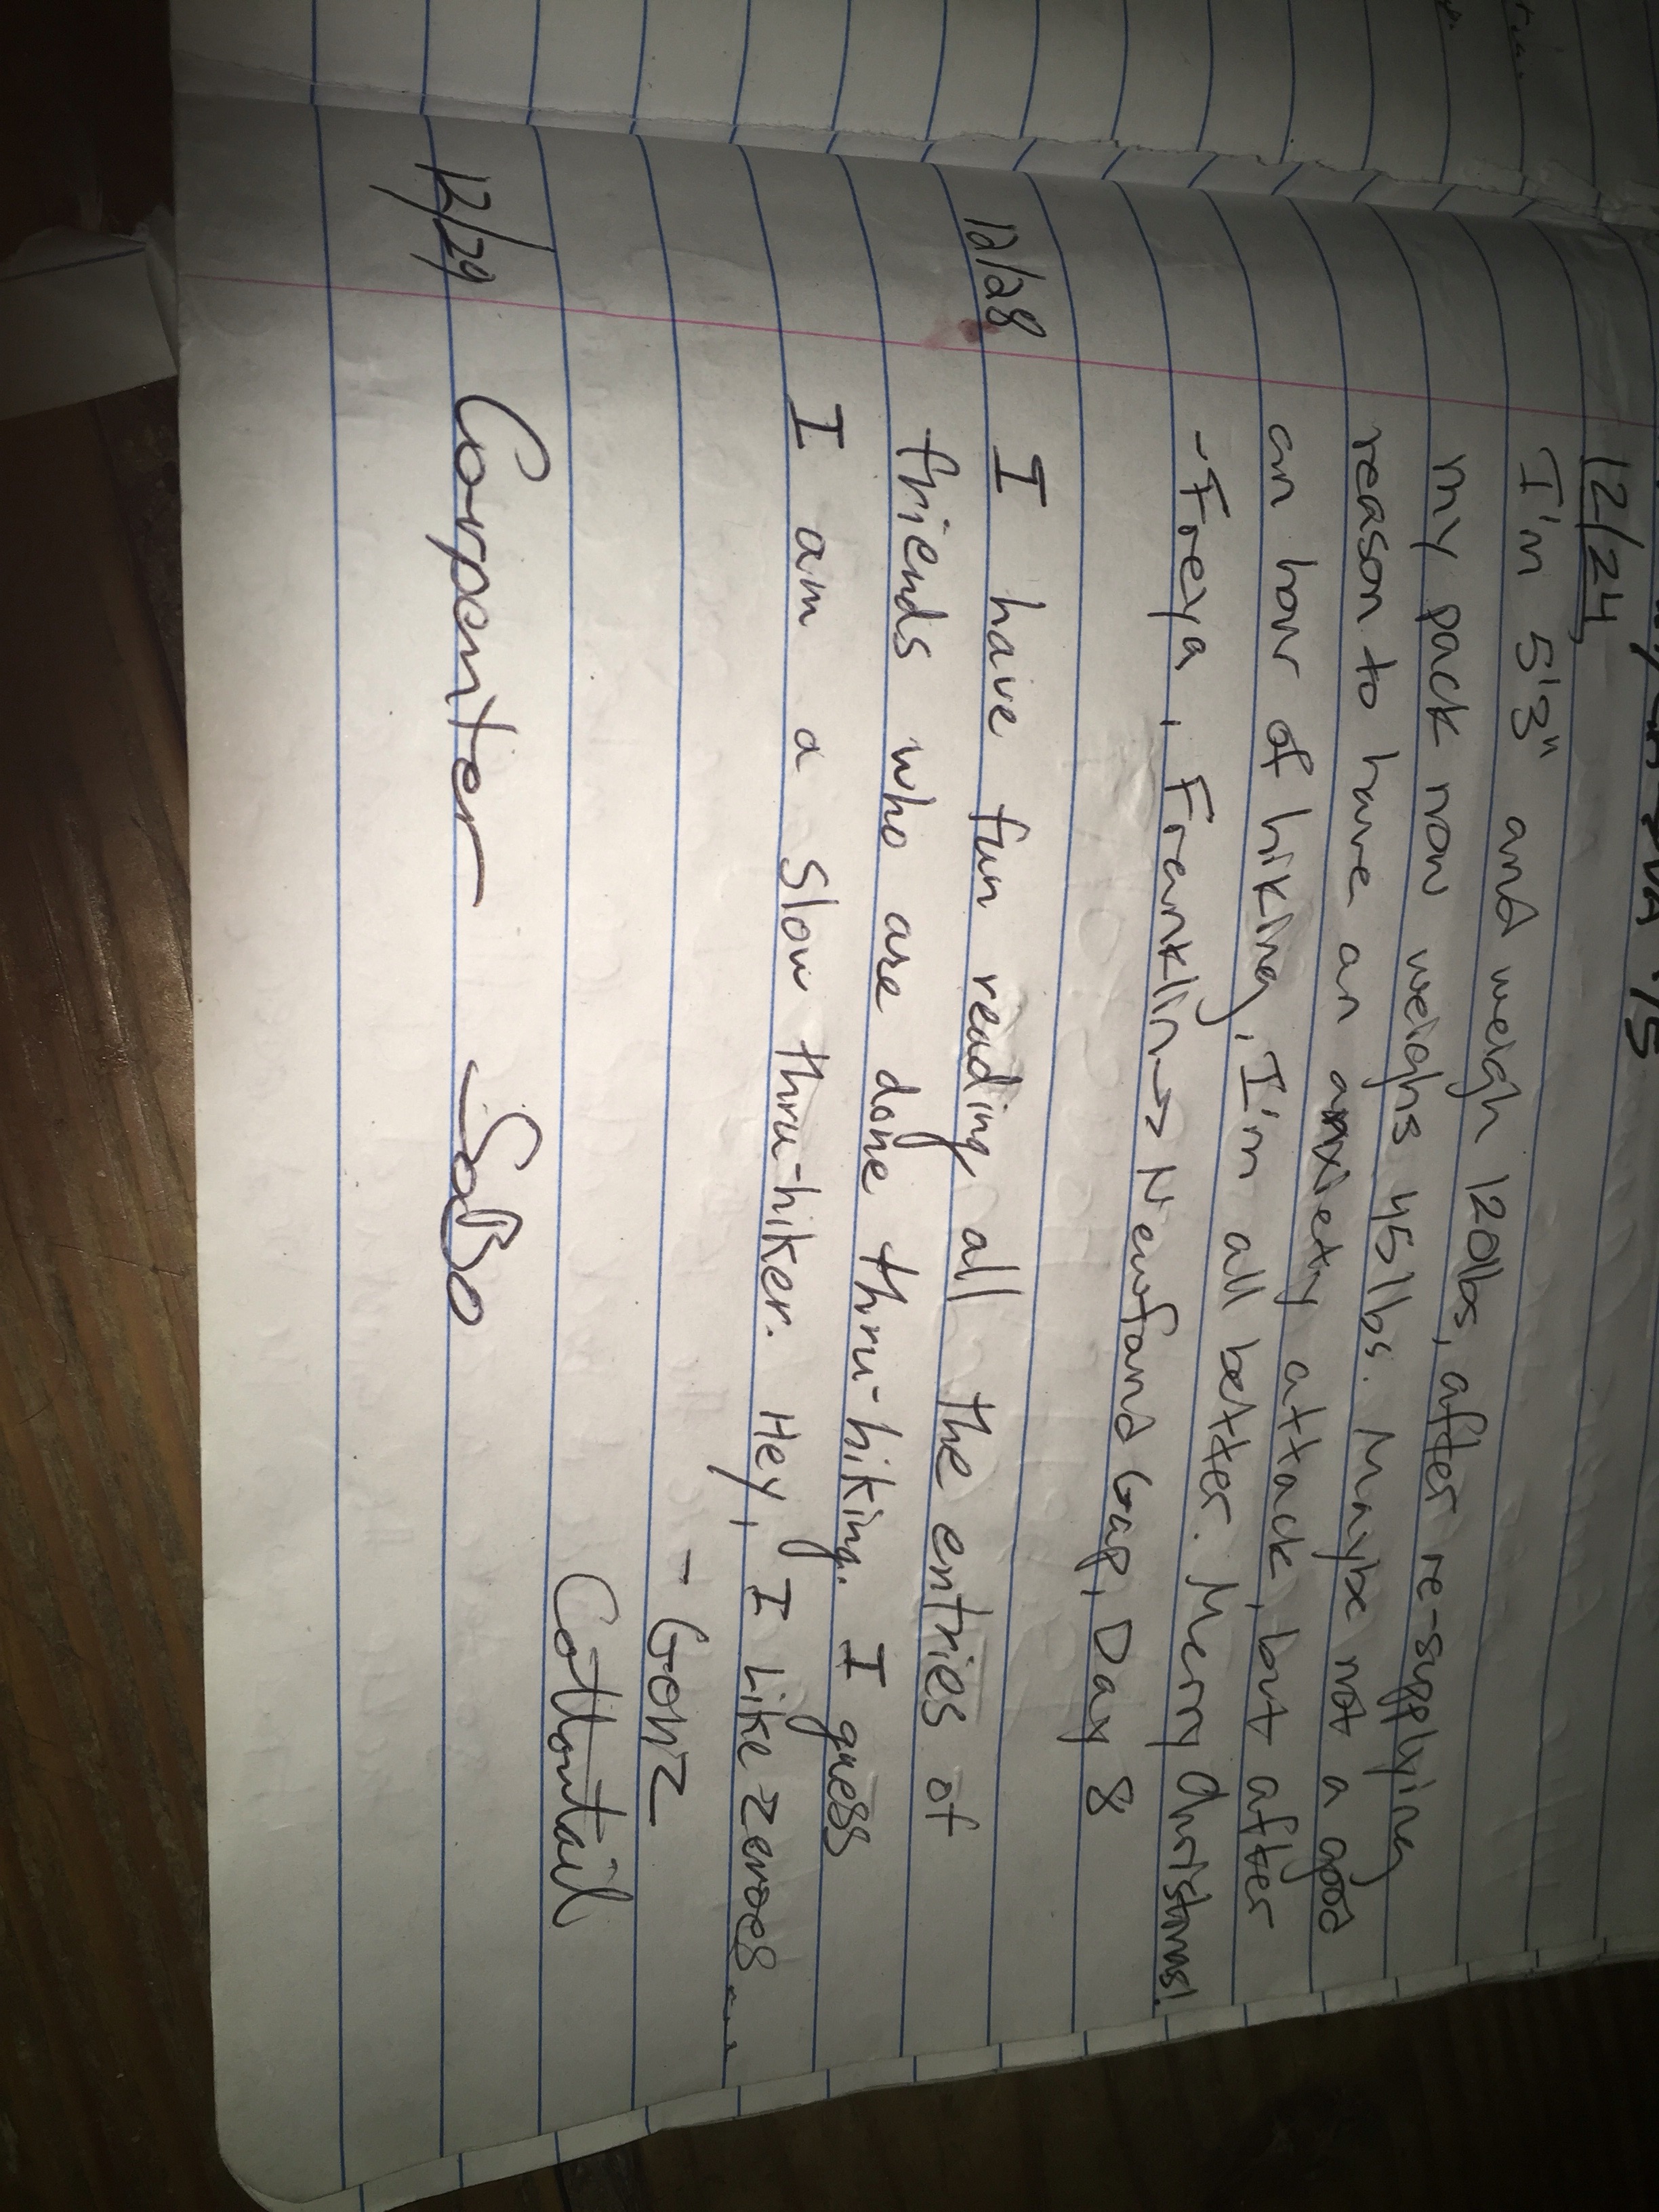 12/24
I'm 5'3" and weigh 120lbs, after re-supplying
my pack now weighs 45lbs. Maybe not a good
reason to have an anxiety attack, but after
an hour of hiking, I'm all better. Merry Christmas!
-Freya, Franklin -> Newfound Gap, Day 8
12/28 I have fun reading all the entries of
friends who are done thru-hiking. I guess
I am a slow thru-hiker. Hey, I like zeroes...
- GONZ
Cottontail
12/29 Carpenter SoBo